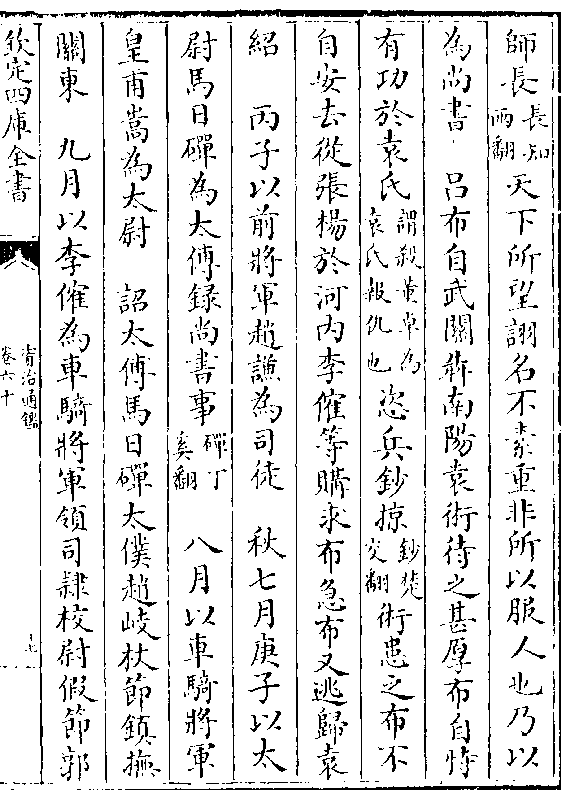 師長長知兩翻天下所望詡名不素重非所以服人也乃以
為尚書 呂布自武關奔南陽袁術待之甚厚布自恃
有功於袁氏謂殺董卓為袁氏報仇也恣兵鈔掠鈔楚交翻術患之布不
自安去從張楊於河内李傕等購求布急布又逃歸袁
紹 丙子以前將軍趙謙為司徒 秋七月庚子以太
尉馬日磾為太傅録尚書事磾丁奚翻 八月以車騎將軍
皇甫嵩為太尉 詔太傅馬日磾太僕趙岐杖節鎮撫
關東 九月以李傕為車騎將軍領司隸校尉假節郭
欽定四庫全書
資治通鑑
卷六十